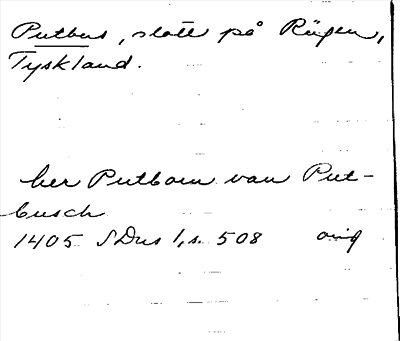 Putbus, slott på Rügen,
Tyskland.
her Putbom van Put-
busch
1405 SDns 1, s. 508 orig